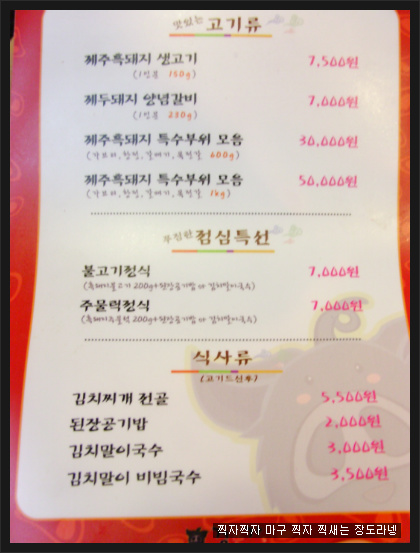 맛있는 고기류
제주흑돼지 생고기 7,500원
(1인분 150g)
제주돼지 양념갈비 7,000원
(1인분 230g)
제주흑돼지 특수부위 모음 30,000원
600g)
제주흑돼지 특수부위 모음 50,000원
1kg)
푸짐한 점심특선
불고기정식 7,000원
200g+된장공기밥 or 김치말이국수)
주물럭정식 7,000원
200g+된장공기밥 or 김치말이국수)
식사류
(고기드신후)
김치찌개 전골 5,500원
된장공기밥 2,000원
김치말이국수 3,000원
김치말이 비빔국수 3,500원
찍자찍자 마구 찍자 찍새는 장도라넹